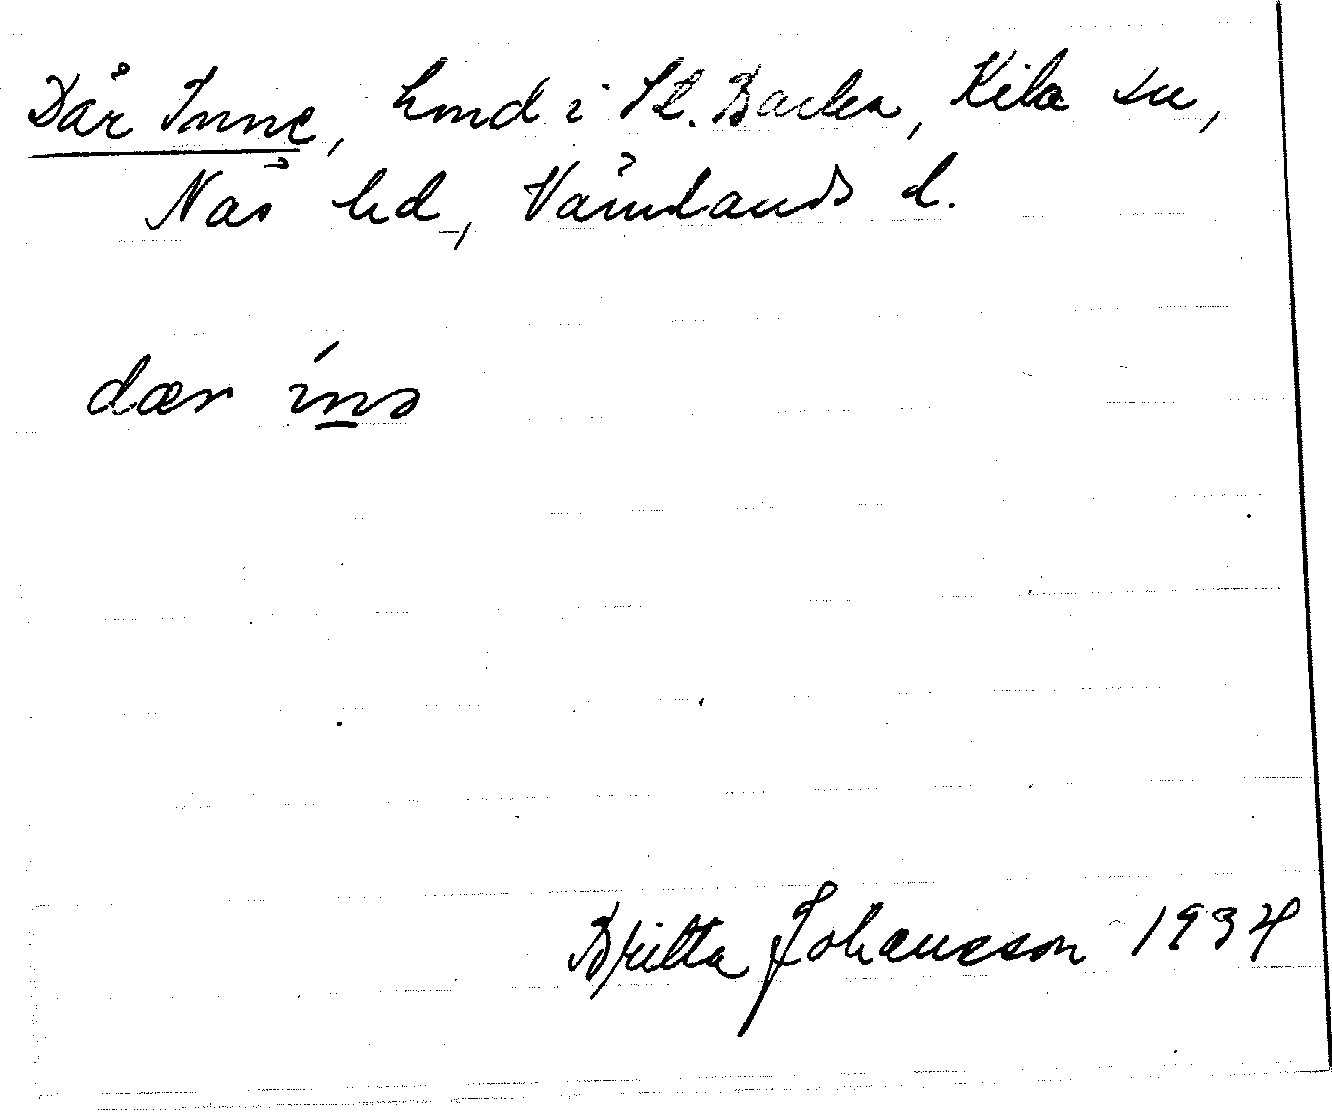 Där Inne, hmd i St. Backa, Kila sn,
Näs hd, Värmlands l.
dær ınə
Britta Johansson 1934